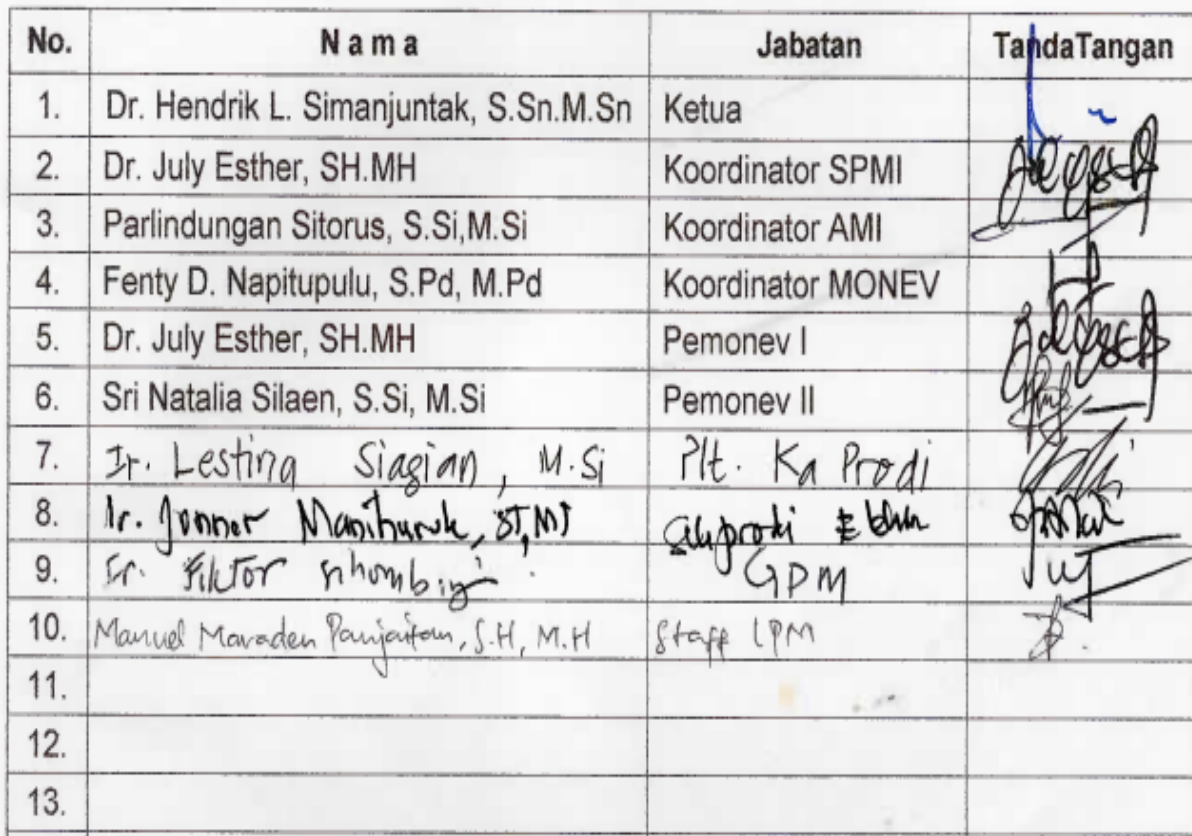 No. Nama Jabatan TandaTangan
1. Dr. Hendrik L. Simanjuntak, S.Sn.M.Sn Ketua
2. Dr. July Esther, SH.MH Koordinator SPMI
3. Parlindungan Sitorus, S.Si,M.Si Koordinator AMI
4. Fenty D. Napitupulu, S.Pd, M.Pd Koordinator MONEV
5. Dr. July Esther, SH.MH Pemonev I
6. Sri Natalia Silaen, S.Si, M.Si Pemonev II
7. Ir. Lestina Siagian, M.Si Plt. Ka Prodi
8. Ir. Jonner Manihuruk, ST, MT
9. Ir. Fiktor Sihombing GPM
10. Manuel Maraden Panjaitan, S.H, M.H Staff LPM
11.
12.
13.